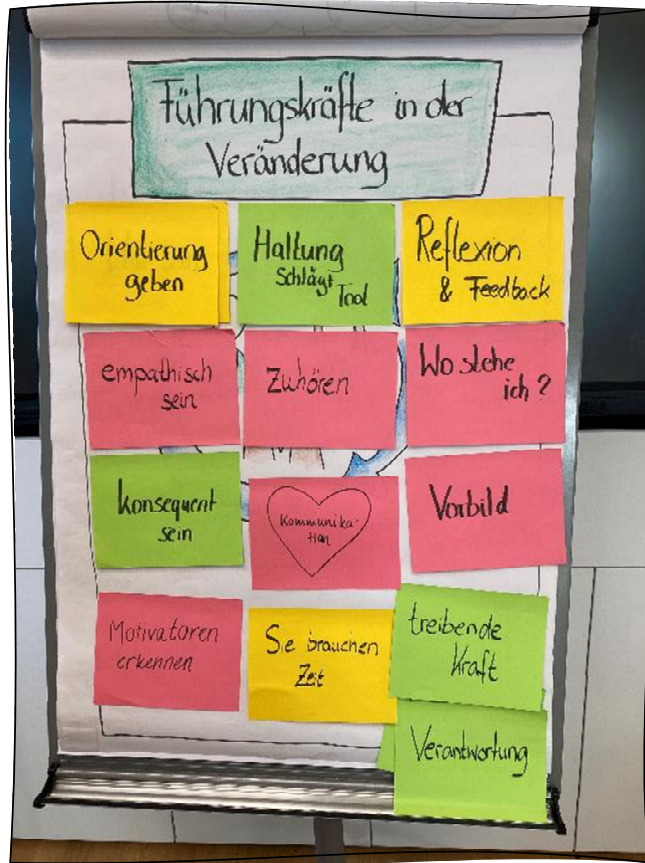 Führungskräfte in der
Veränderung
Orientierung
geben
Haltung
schlägt
Tool
Reflexion
& Feedback
empathisch
sein
Zuhören
Wo stehe
ich?
konsequent
sein
Kommunika-
tion
Vorbild
Motivatoren
erkennen
Sie brauchen
Zeit
treibende
Kraft
Verantwortung